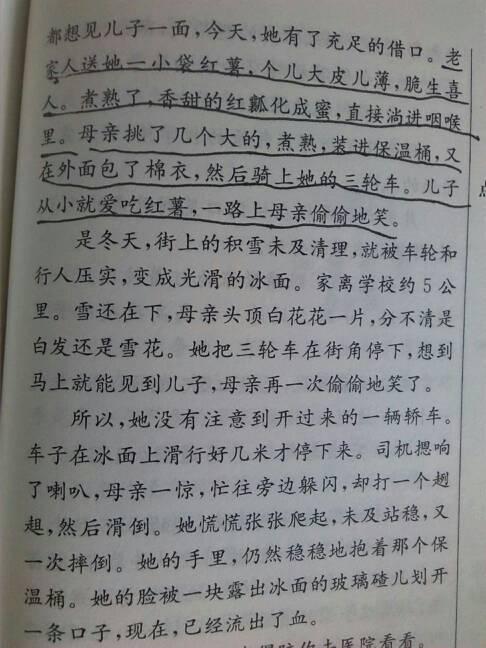 都想见儿子一面，今天，她有了充足的借口。老
家人送她一小袋红薯，个儿大皮儿薄，脆生喜
人。煮熟了，香甜的红瓤化成蜜，直接淌进咽喉
里。母亲挑了几个大的，煮熟，装进保温桶，又
在外面包了棉衣，然后骑上她的三轮车。儿子
从小就爱吃红薯，一路上母亲偷偷地笑。
是冬天，街上的积雪未及清理，就被车轮和
行人压实，变成光滑的冰面。家离学校约5公
里。雪还在下，母亲头顶白花花一片，分不清是
白发还是雪花。她把三轮车在街角停下，想到
马上就能见到儿子，母亲再一次偷偷地笑了。
所以，她没有注意到开过来的一辆轿车。
车子在冰面上滑行好几米才停下来。司机摁响
了喇叭，母亲一惊，忙往旁边躲闪，却打一个趔
趄，然后滑倒。她慌慌张张爬起，未及站稳，又
一次摔倒。她的手里，仍然稳稳地抱着那个保
温桶。她的脸被一块露出冰面的玻璃碴儿划开
一条口子，现在，已经流出了血。
你去医院看看。
点